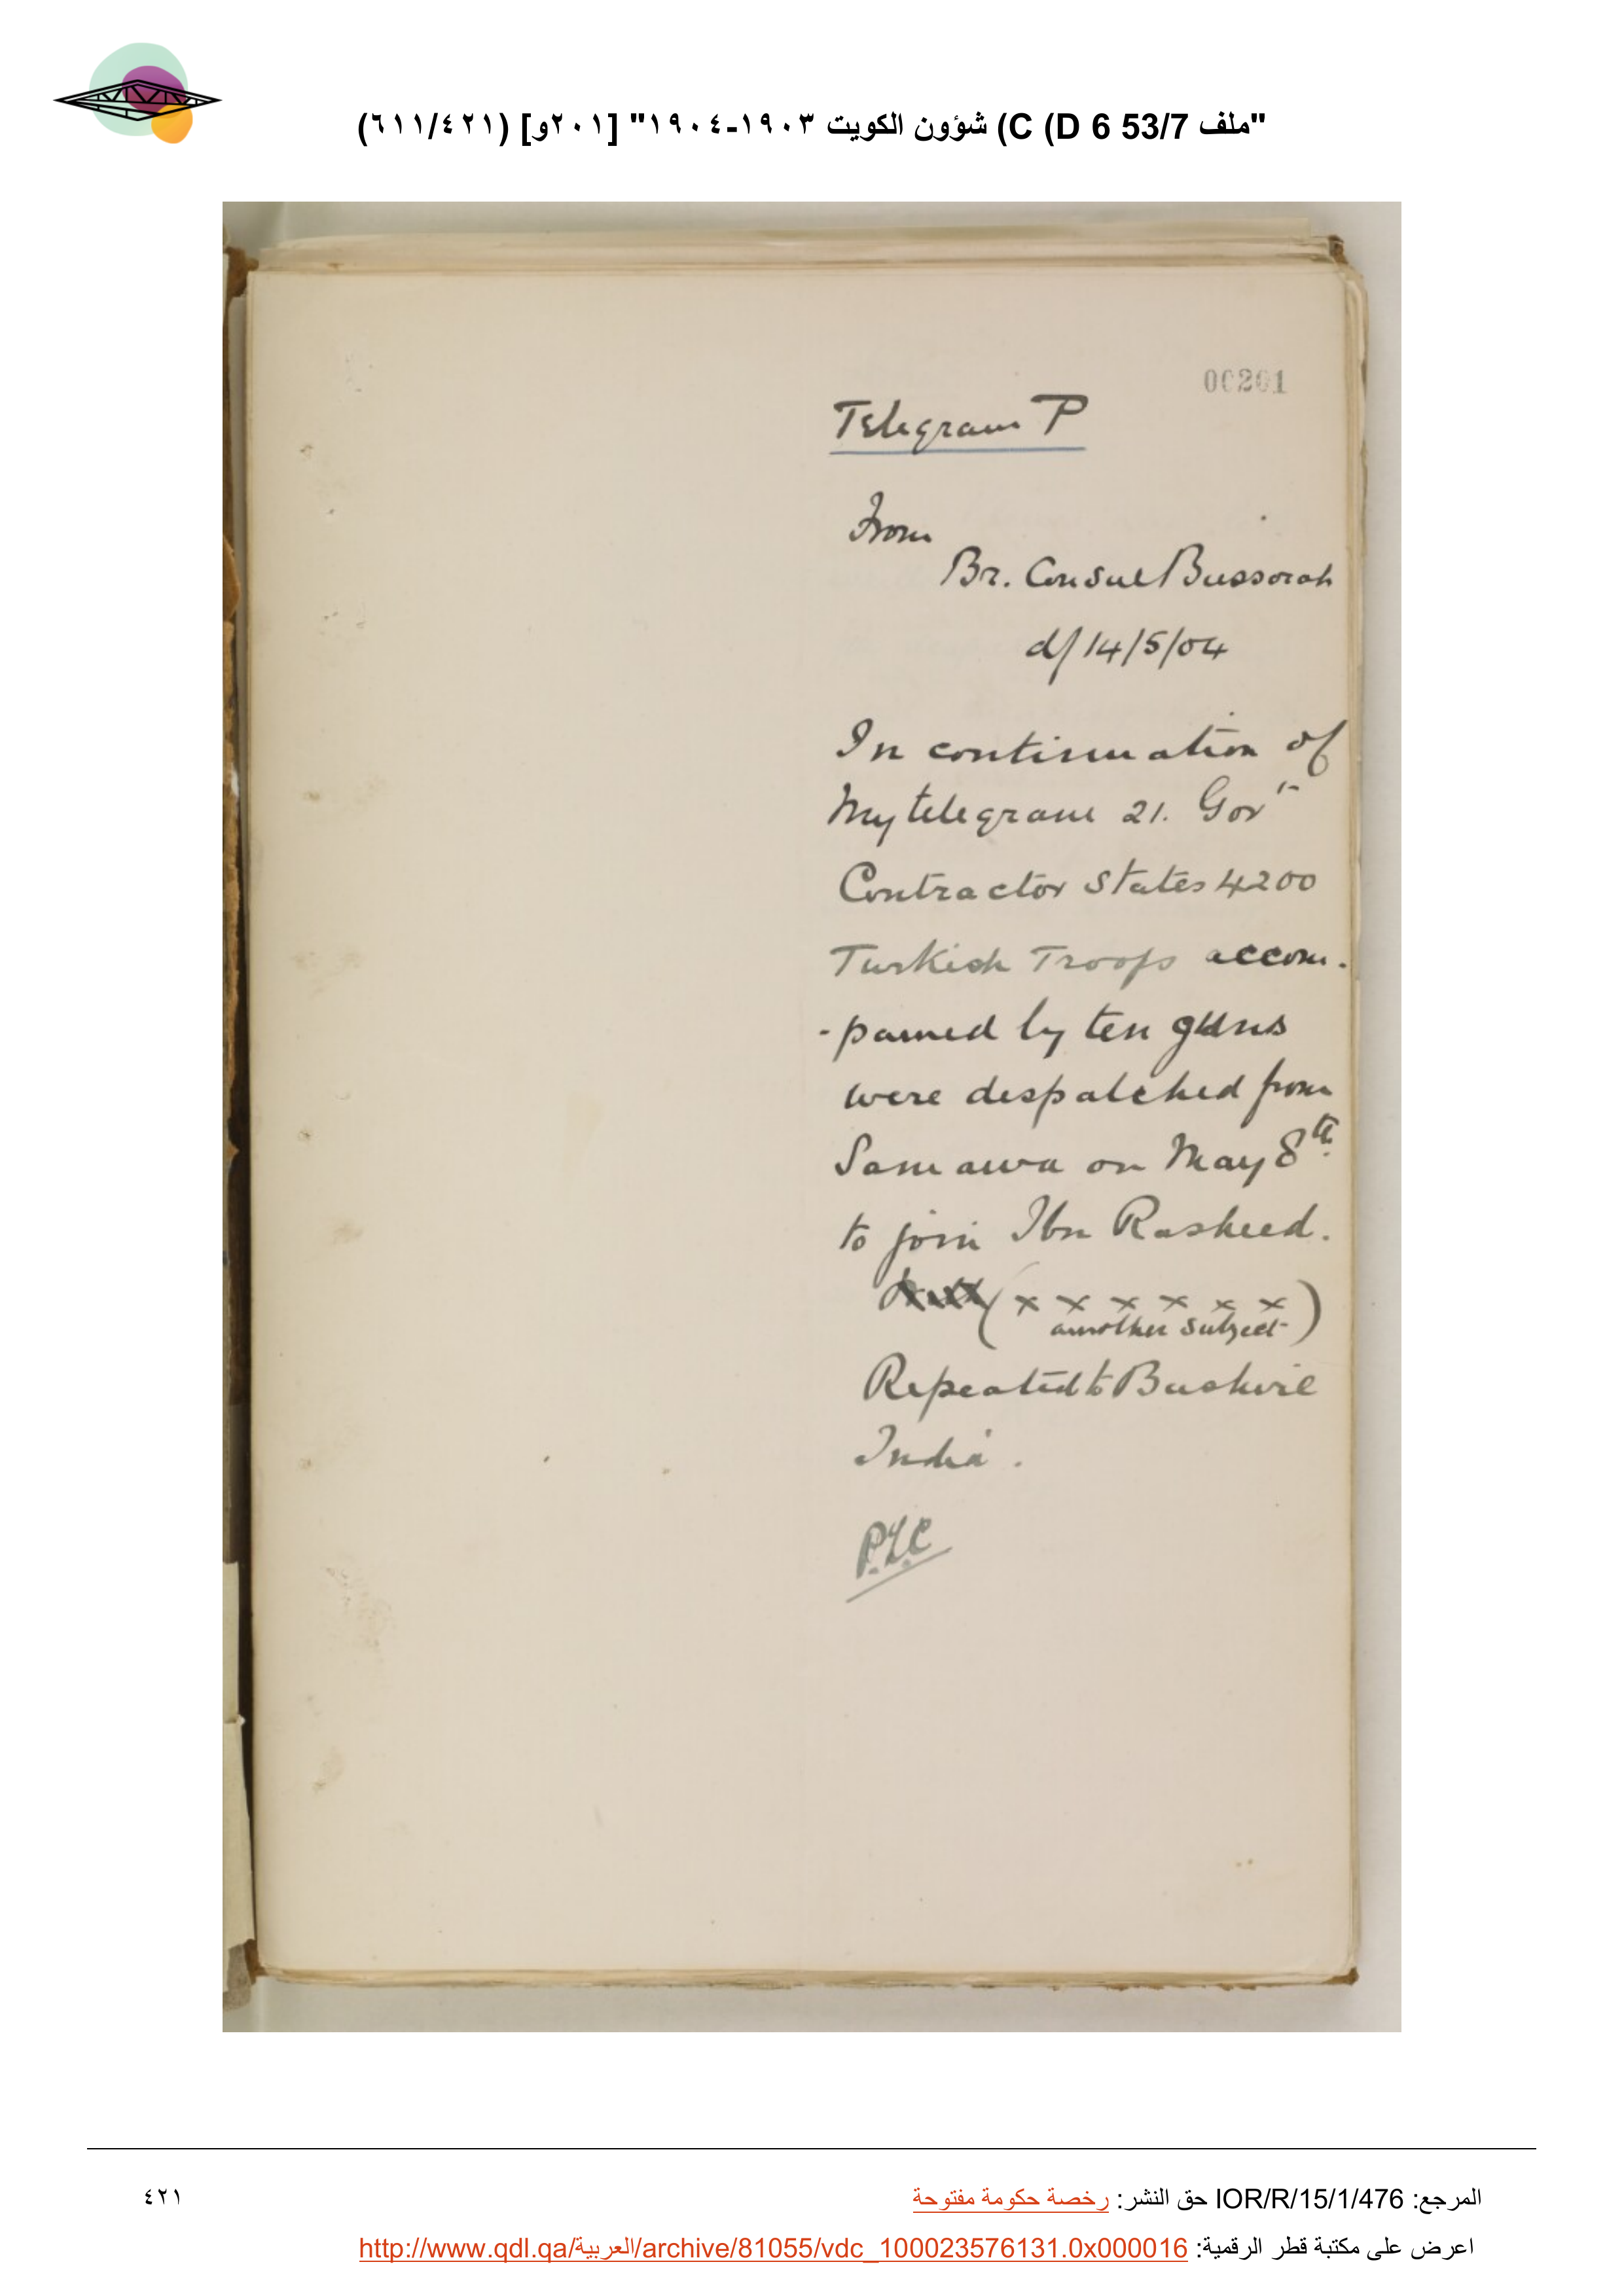 "ملف 53/7 D 6) C) شؤون الكويت ١٩٠٣-١٩٠٤" [٢٠١و] (٦١١/٤٢١)
00201
Telegram P
From
Br. Consul Bussorah
d/ 14/5/04
In continuation of
My telegram 21. Govt
Contractor states 4200
Turkish Troops accom-
-panied by ten guns
were despatched from
Samawa on May 8th.
to join Ibn Rasheed.
(x x x x x x)
another subject
Repeated to Bushire
India.
المرجع: IOR/R/15/1/476 حق النشر: رخصة حكومة مفتوحة
٤٢١
اعرض على مكتبة قطر الرقمية: http://www.qdl.qa/العربية/archive/81055/vdc_100023576131.0x000016